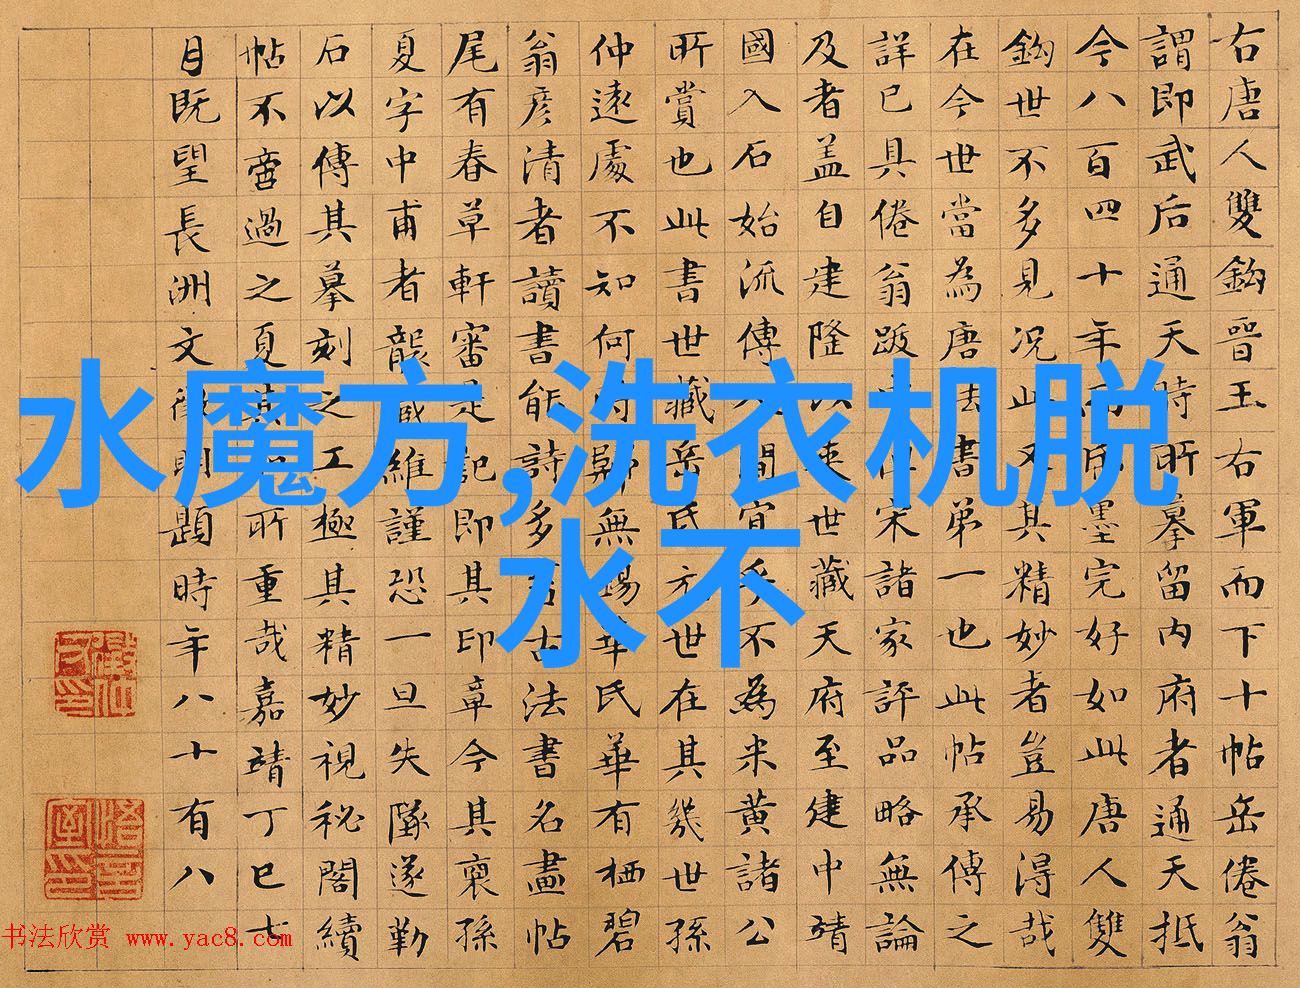 水魔方,洗衣机脱
水不
右唐人雙鈎晉王右軍而下十帖岳倦翁
謂即武后通天時所摹留內府者通天抵
今八百四十年而墨完好如此唐人雙
鈎世不多見況此又其精妙者豈易得哉
在今世當為唐法書第一也此帖承傳之
詳已具倦翁跋宋諸家評品略無論
及者盖自建隆以來世藏天府至建中靖
國入石始流傳人間宜乎不為米黃諸公
所賞也此書世藏岳氏元世在其幾世孫
仲遠處不知何時歸無錫華氏華有栖碧
翁彦清者讀書能詩多古法書名畫帖
尾有春草軒審是記即其印章今其裔孫
夏字中甫者襲藏維謹恐一旦失墜遂勒
石以傳其摹刻之工極其精妙視秘閣續
帖不啻過之夏其所重哉嘉靖丁巳七
月既望長洲文徵明題時年八十有八
书法欣赏 www.yac8.com